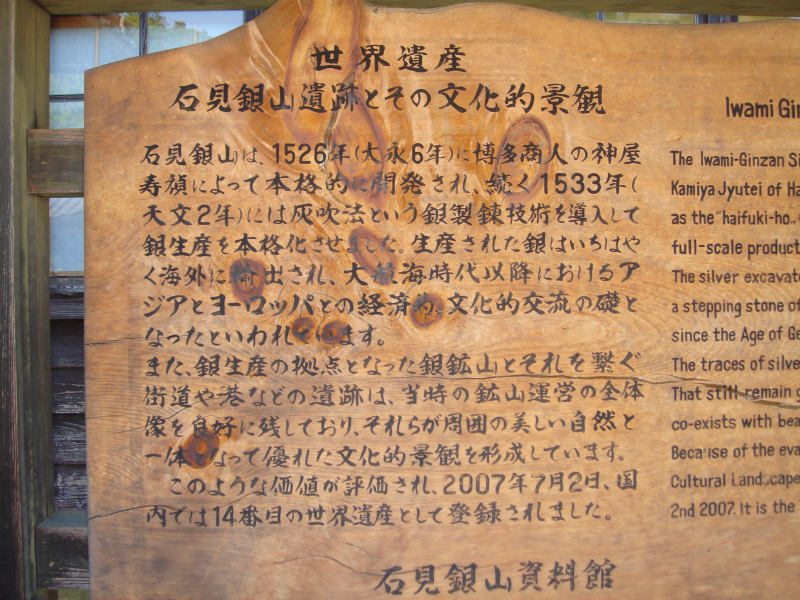 世界遺産
石見銀山遺跡とその文化的景観
石見銀山は、1526年(大永6年)に博多商人の神屋
寿禎によって本格的に開発され、続く1533年(
天文2年)には灰吹法という銀製錬技術を導入して
銀生産を本格化させました。生産された銀はいちはや
く海外に輸出され、大航海時代以降におけるア
ジアとヨーロッパとの経済的、文化的交流の礎と
なったといわれています。
また、銀生産の拠点となった銀鉱山とそれを繋ぐ
街道や港などの遺跡は、当時の鉱山運営の全体
像を良好に残しており、それらが周囲の美しい自然と
一体となって優れた文化的景観を形成しています。
このような価値が評価され、2007年7月2日、国
内では14番目の世界遺産として登録されました。
石見銀山資料館
Iwami Gin
The Iwami-Ginzan Si
Kamiya Jyutei of Ha
as the "haifuki-ho
full-scale product
The silver excavate
a stepping stone of
since the Age of Ge
The traces of silve
That still remain g
co-exists with bea
Because of the eva
Cultural Landscape
2nd 2007. It is the